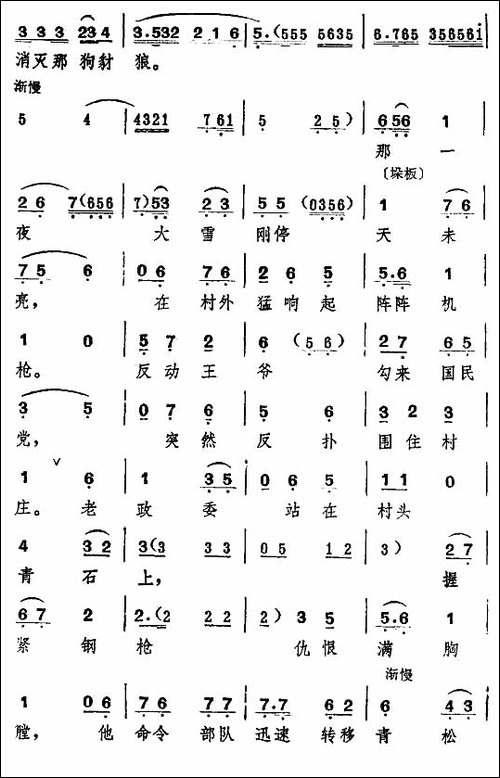 3 3 3 234 | 3.532 2 1 6 | 5.(555 5635 | 6.765 356561
消灭那狗豺 狼。
渐慢
5 4 | 4321 7 61 | 5 2 5) | 6 56 1
那 一
〔垛板〕
2 6 7(656 | 7)53 2 3 | 5 5 (0356) | 1 7 6
夜 大 雪 刚停 天 未
7 5 6 | 0 6 7 6 | 2 6 5 | 5.6 1
亮, 在 村外 猛响 起 阵阵 机
1 0 | 5 7 2 | 6 (5 6) | 2 7 6 5
枪。 反动 王 爷 勾来 国民
3 5 | 0 7 6 | 5 6 | 3 2 3
党, 突 然 反 扑 围 住 村
∨
1 6 | 1 3 5 | 0 6 5 | 1 1 0
庄。老 政 委 站 在 村头
4 3 2 | 3(3 3 3 | 0 5 1 2 | 3) 2 7
青 石 上, 握
6 7 2 | 2.(2 2 2 | 2) 3 5 | 5.6 1
紧 钢 枪 仇 恨 满 胸
渐慢
1 0 6 | 7 6 7 7 | 7.7 6 2 | 6 4 3
膛, 他 命令 部队 迅速 转移 青 松